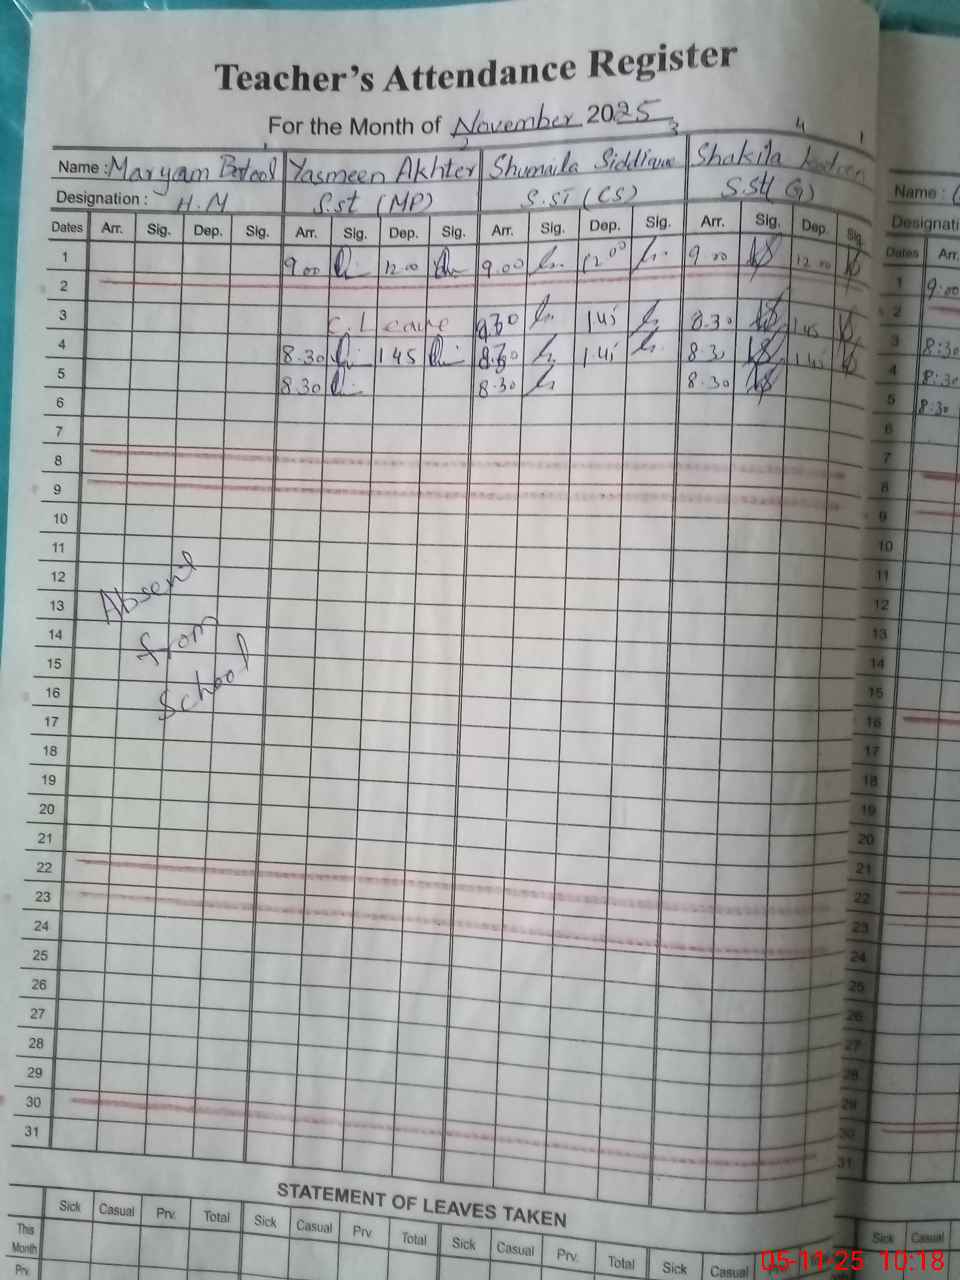 Teacher's Attendance Register
For the Month of November 2025
1 2 3 4
Name : Maryam Batool Yasmeen Akhter Shumaila Siddique Shakila
Designation : H.M S.st (MP) S.ST (CS) S.St (G)
Dates Arr. Sig. Dep. Sig. Arr. Sig. Dep. Sig. Arr. Sig. Dep. Sig. Arr. Sig. Dep. Sig.
1 9.00 12.00 9.00 12.00 9.00 12.00
2
3 C.L 8.30 1.45 8.30 1.45
4 8.30 1 45 8.30 1.45 8.30 1.45
5 8.30 8.30 8.30
6
7
8
9
10
11
12
13
14
15
16
17
18
19
20
21
22
23
24
25
26
27
28
29
30
31
Absent
from
School
STATEMENT OF LEAVES TAKEN
Sick Casual Prv. Total Sick Casual Prv. Total Sick Casual Prv. Total Sick Casual
This
Month
Prv.
1
Name :
Dates Arr.
1 9:00
2
3 8:30
4 8:30
5 8:30
6
7
8
9
10
11
12
13
14
15
16
17
18
19
20
21
22
23
24
25
26
27
28
29
30
31
Sick Casual
05-11-25 10:18